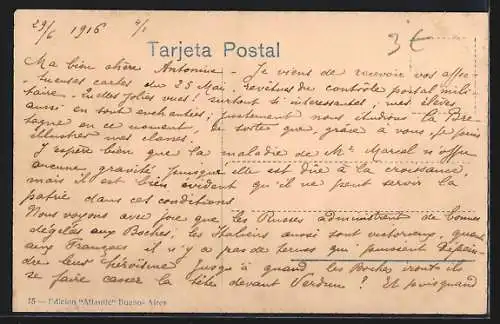 29/6 1916 4/1
3€
Tarjeta Postal
Ma bien chère Antonine - Je viens de recevoir vos affec-
tueuses cartes du 25 Mai, revêtues du contrôle postal mili
taire - Quelles jolies vues! surtout si intéressantes; mes élèves
aussi en sont enchantées; justement nous étudions la Bre-
tagne en ce moment, de sorte que, grâce à vous, je puis
illustrer mes classes.
J'espère bien que la maladie de Mr Marcel n'offre
aucune gravité puisque elle est due à la croissance,
mais il est bien évident qu'il ne peut servir la
patrie dans ces conditions
Nous voyons avec joie que les Russes administrent de bonnes
dégelées aux Boches; les Italiens aussi sont victorieux, quant
aux Français il n'y a pas de termes qui puissent dépein-
dre leur héroïsme Jusqu'à quand les Boches iront-ils
se faire casser la tête devant Verdun? Et puisquand
15 - Edicion "Atlantic" Buenos Aires